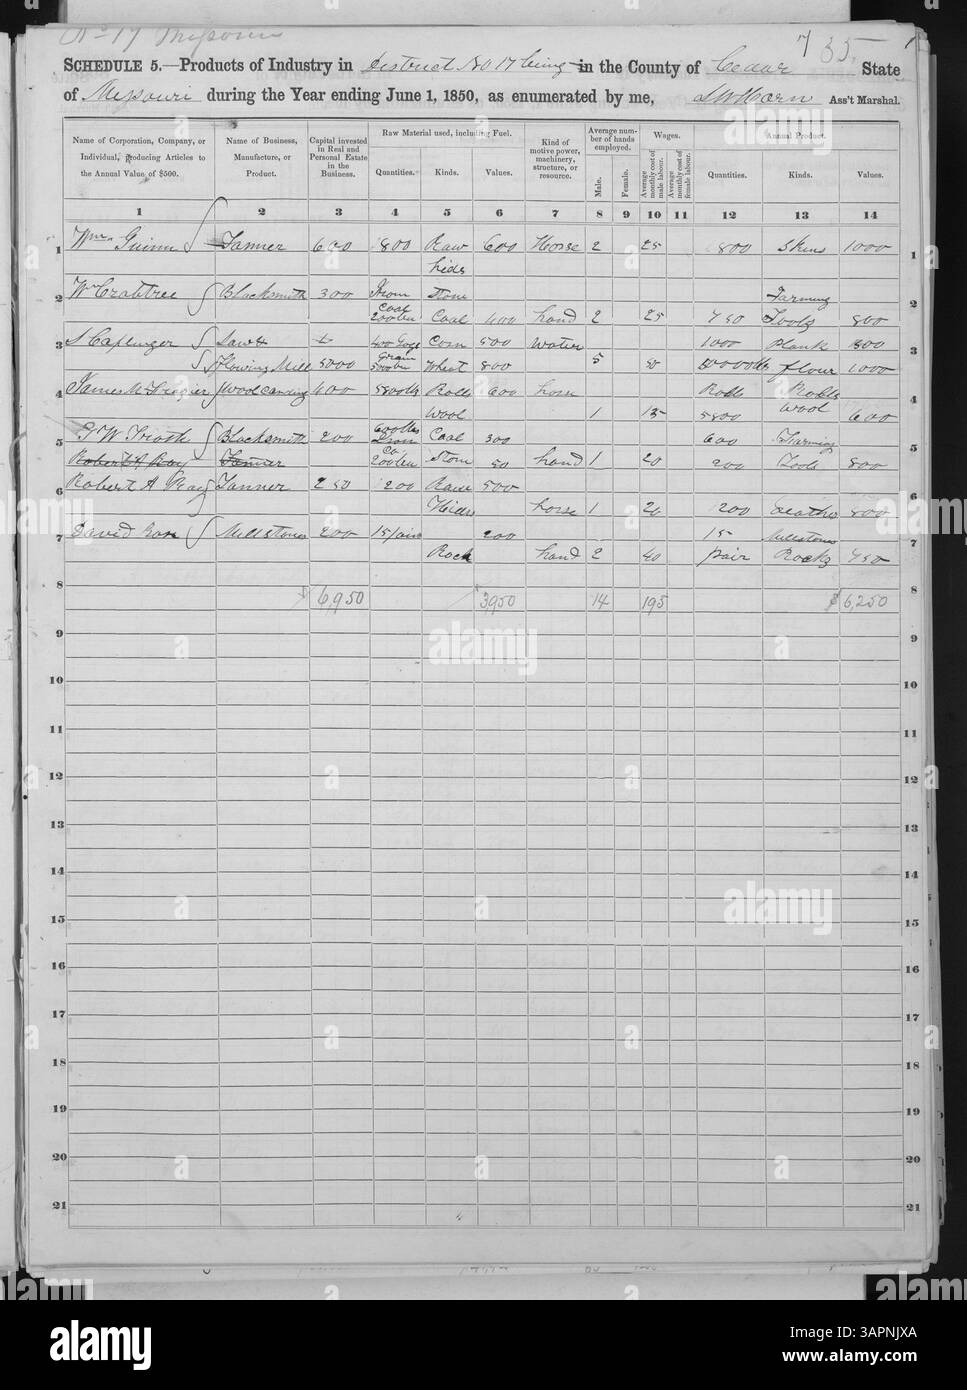 No 17 Missouri
7 35
SCHEDULE 5.—Products of Industry in District No 17 being in the County of Cedar State
of Missouri during the Year ending June 1, 1850, as enumerated by me, Ass't Marshal.
Name of Corporation, Company, or Individual, Producing Articles to the Annual Value of $500.
Name of Business, Manufacture, or Product.
Capital invested in Real and Personal Estate in the Business.
Raw Material used, including Fuel.
Quantities. Kinds. Values.
Kind of motive power, machinery, structure, or resource.
Average number of hands employed.
Male. Female.
Wages.
Average monthly cost of male labour.
Average monthly cost of female labour.
Annual Product.
Quantities. Kinds. Values.
1 2 3 4 5 6 7 8 9 10 11 12 13 14
1 Wm Guinn Tanner 600 800 Raw 600 Horse 2 25 800 Skins 1000 1
hides
2 W Crabtree Blacksmith 300 Farming 2
Coal
200 bu Coal 400 hand 2 25 750 Tools 800
3 Saw & Corn 500 Water 1000 Plank 3
Grain
Flowing Mill 5000 500 bu Wheat 800 5 50 flour 1000
4 James M Wool Carding 400 5800 lbs Rolls 600 horse Rolls Rolls 4
Wool 1 15 5800 Wool 600
5 G W Blacksmith 200 600 lbs Coal 300 600 Farming 5
Robert A Ray Tanner 200 bu 50 hand 1 20 200 Tools 800
6 Robert A Ray Tanner 250 200 Raw 500
Hides horse 1 20 200 Leather 800 6
7 David Millstones 200 15 pairs 200 15 Millstones
Rock hand 2 40 pair Rocks 750 7
8 $ 6,950 $ 3,950 14 195 $ 6,250 8
9 9
10 10
11 11
12 12
13 13
14 14
15 15
16 16
17 17
18 18
19 19
20 20
21 21
alamy
alamy
alamy
alamy
Image ID: 3APNJXA
www.alamy.com